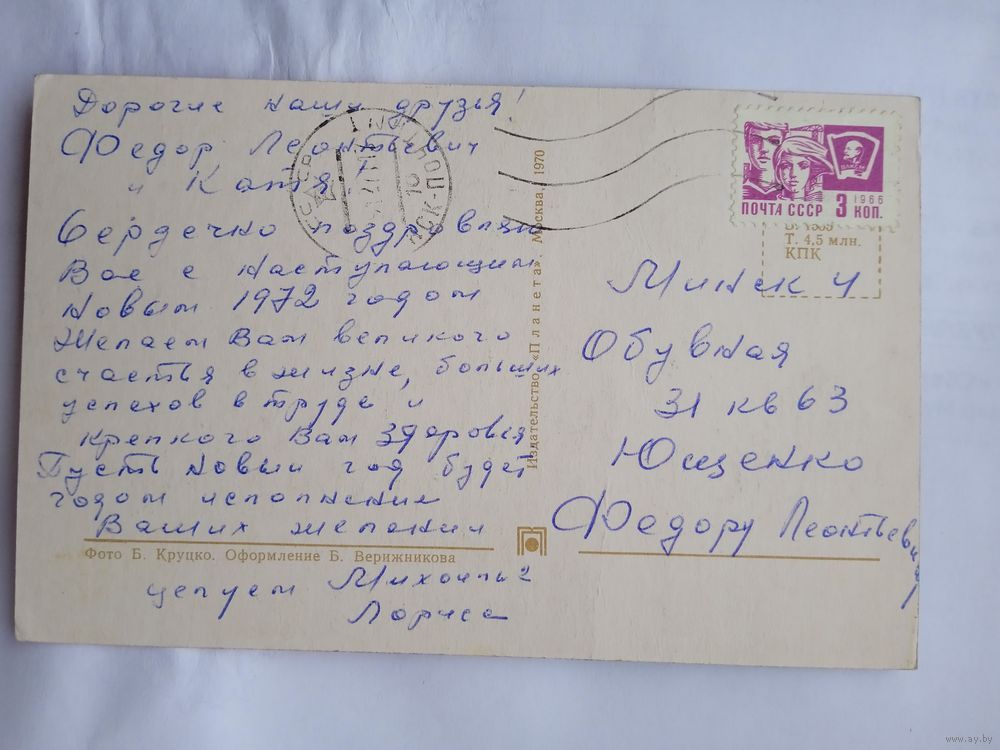 Дорогие наши друзья!
Федор Леонтьевич
и Катя!
Сердечно поздравляем
Вас с наступающим
Новым 1972 годом
Желаем Вам великого
счастья в жизне, больших
успехов в труде и
крепкого Вам здоровья
Пусть новый год будет
годом исполнение
Ваших желании
целуем Михаил и
Лариса
Фото Б. Круцко. Оформление Б. Верижникова
Издательство «Планета». Москва, 1970
ПОЧТА СССР 3 КОП.
1966
ВЛКСМ
Т. 4,5 млн.
КПК
Минск 4
Обувная
31 кв 63
Ющенко
Федору Леонтьевичу
www.ay.by